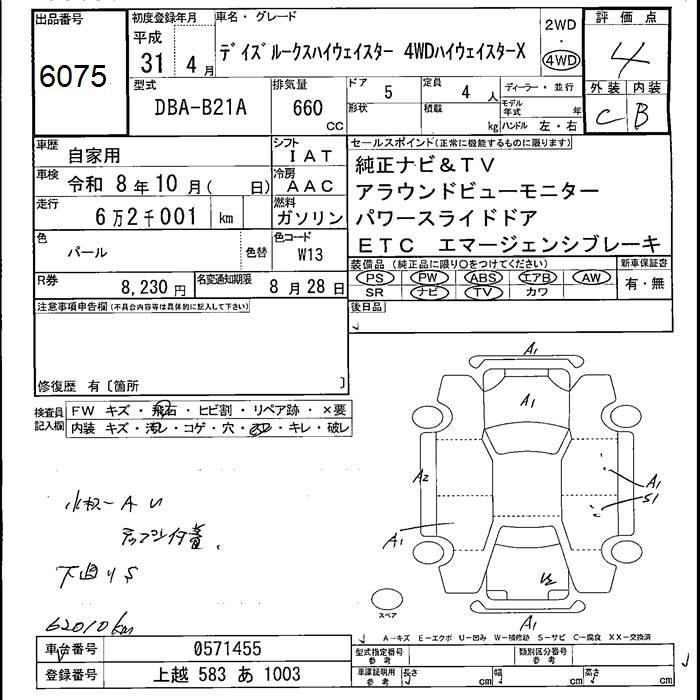 出品番号
6075
初度登録年月
平成
31 4 月
車名・グレード
デイズ ルークスハイウェイスター 4WDハイウェイスターX
2WD
・
4WD
評価点
4
外装 内装
C B
型式
DBA-B21A
排気量
660
cc
ドア 5
形状
定員 4 人
積載 kg
ディーラー・並行
モデル年式 年
ハンドル 左・右
車歴 自家用
シフト IAT
車検 令和 8 年 10 月 ( 日)
冷房 AAC
走行 6万2千001 km
燃料 ガソリン
色 パール 色替
色コード W13
R券 8,230 円
名変通知期限 8 月 28 日
セールスポイント(正常に機能するものに限ります)
純正ナビ&TV
アラウンドビューモニター
パワースライドドア
ETC エマージェンシブレーキ
装備品 (純正品に限り○をつけてください)
PS PW ABS エアB AW
SR ナビ TV カワ
新車保証書
有・無
後日品
注意事項申告欄 (不具合内容等は具体的に記入して下さい)
修復歴 有〔箇所 〕
検査員記入欄
FW キズ・飛石・ヒビ割・リペア跡・×要
内装 キズ・汚レ・コゲ・穴・ヌレ・キレ・破レ
A1
A1
A2
A1
S1
A1
A1
スペア
下回りS
62010km
A−キズ E−エクボ U−凹み W−補修跡 S−サビ C−腐食 XX−交換済
車台番号 0571455
登録番号 上越 583 あ 1003
型式指定番号 参考
類別区分番号 参考
車庫証明用 参考
長さ cm
幅 cm
高さ cm